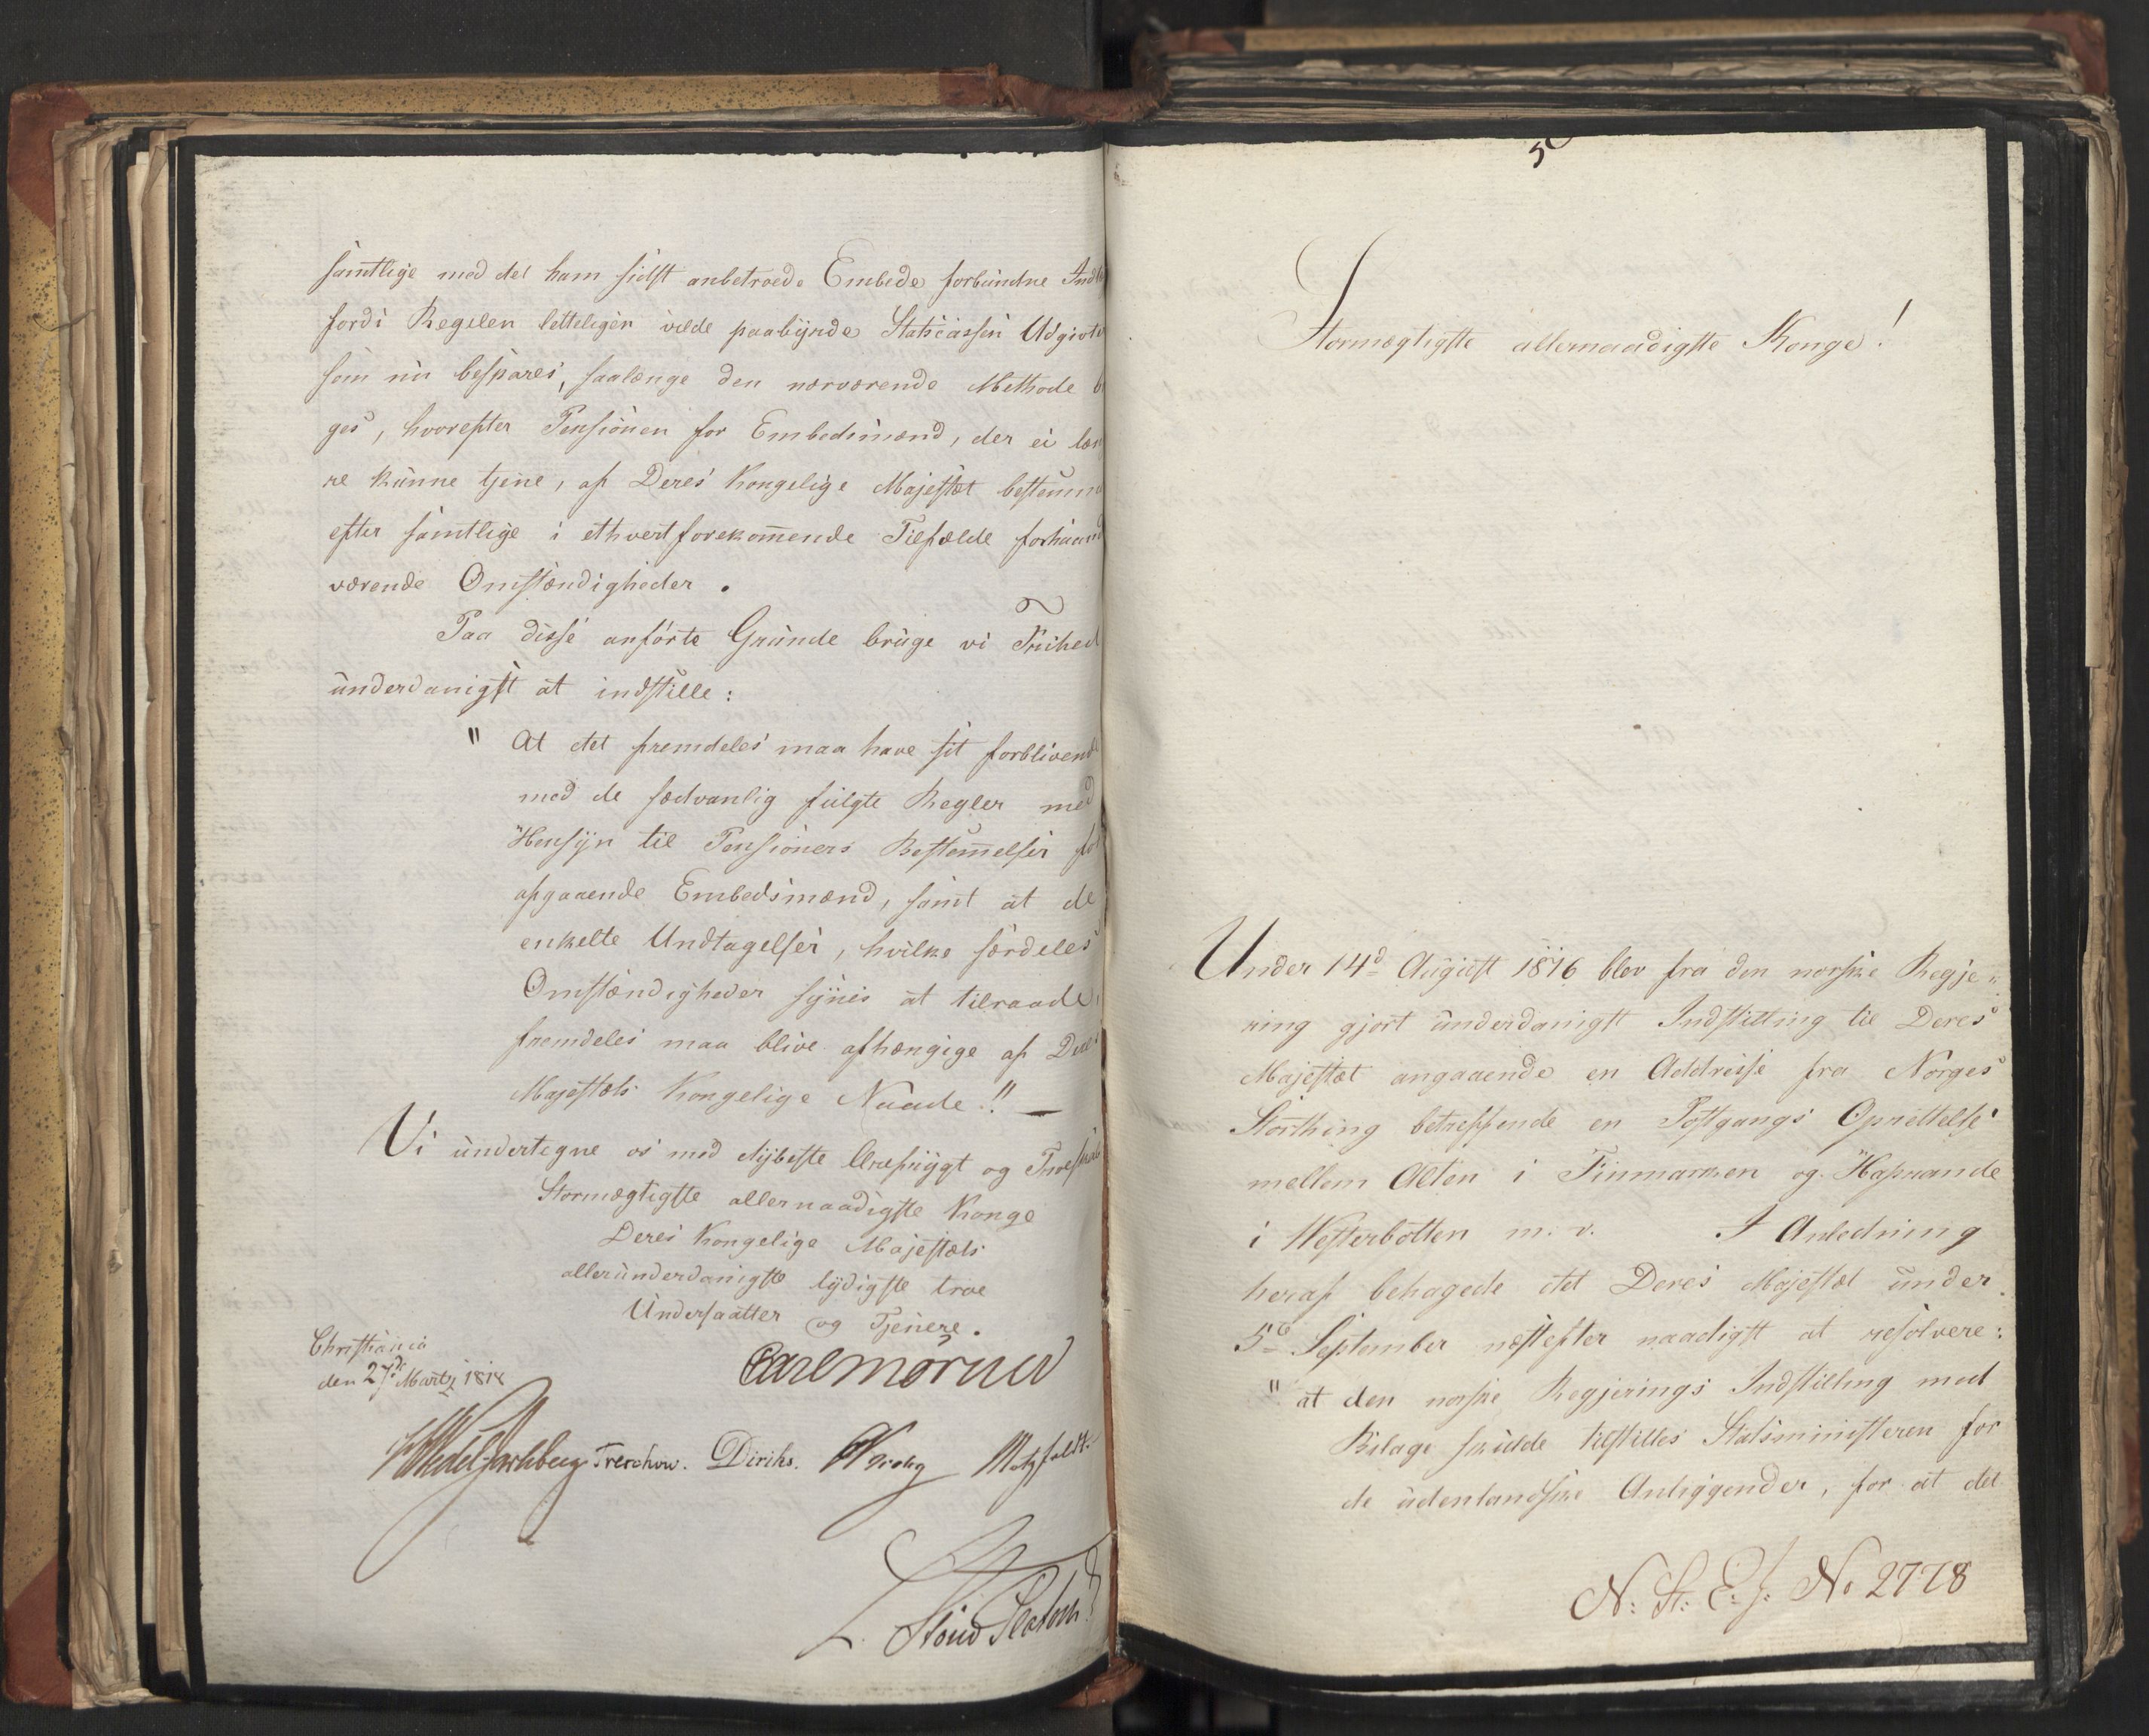 samtlige med det ham sidst anbetroede Embede forbundne Ind
fordi Regelen letteligen vilde paabyrde Statscassen Udgivter
som nu bespares, saalænge den nærværende Methode
ges, hvorefter Pensionen for Embedsmænd, der ei læn
re kunne tjene, af Deres Kongelige Majestæt bestemm
efter samtlige i ethvert forekom̄ende Tilfælde forhaand
værende Omstændigheder.
Paa disse anførte Grunde bruge vi Frihed
underdanigst at indstille:
" At det fremdeles maa have sit forblivende
med de sædvanlig fulgte Regler med
Hensyn til Pensioners Bestem̄elser for
afgaaende Embedsmænd, samt at de
enkelte Undtagelser, hvilke særdeles
Omstændigheder synes at tilraade,
fremdeles maa blive afhængige af Deres
Majestæts Kongelige Naade!! —
Vi undertegne os med dybeste Ærefrygt og Troeskab
Stormægtigste allernaadigste Konge
Deres Kongelige Majestæts
allerunderdanigste lydigste troe
Undersaatter og Tjenere.
Christiania
den 27de Martz 1818
Carl Mørner
Wedel Jarlsberg Treschow. Diriks. Krohg Motzfeldt.
L. Stoud Platou
5
Stormægtigste allernaadigste Konge!
Under 14d August 1816 blev fra den norske Regje„
ring gjort underdanigst Indstilling til Deres
Majestæt angaaende en Addresse fra Norges
Storthing betreffende en Postgangs Oprettelse
mellem Alten i Finmarken og Haparande
i Westerbotten m. v. I Anledning
heraf behagede det Deres Majestæt under
5e September næstefter naadigst at resolvere:
" at den norske Regjerings Indstilling med
Bilage skulde tilstilles Statsministeren for
de udenlandske Anliggender, for at det
N: St: E: J: No 2778